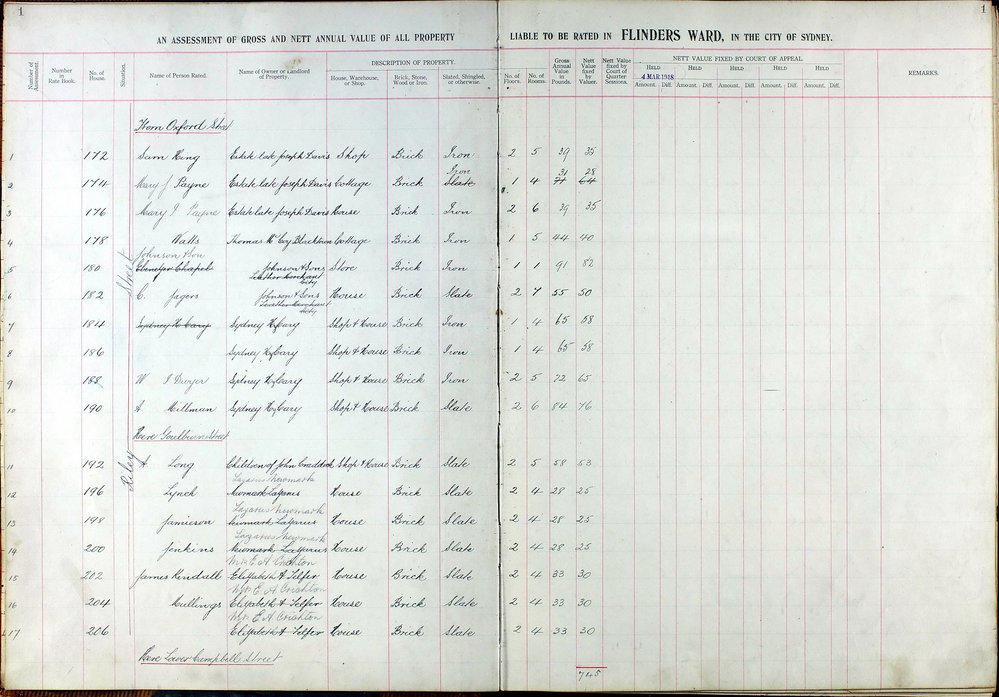 1 1
AN ASSESSMENT OF GROSS AND NETT ANNUAL VALUE OF ALL PROPERTY LIABLE TO BE RATED IN FLINDERS WARD, IN THE CITY OF SYDNEY.
Number of Assessment. Number in Rate Book. No. of House. Situation. Name of Person Rated. Name of Owner or Landlord of Property. DESCRIPTION OF PROPERTY. House, Warehouse, or Shop. Brick, Stone, Wood or Iron. Slated, Shingled, or otherwise. No. of Floors. No. of Rooms. Gross Annual Value in Pounds. Nett Value fixed by Valuer. Nett Value fixed by Court of Quarter Sessions. NETT VALUE FIXED BY COURT OF APPEAL REMARKS.
HELD HELD HELD HELD HELD
4 MAR 1918
Amount. Diff. Amount. Diff. Amount. Diff. Amount. Diff. Amount. Diff.
From Oxford Street
1 172 Sam King Estate late Joseph Davis Shop Brick Iron 2 5 39 35
Iron 31 28
2 174 Mary J Payne Estate late Joseph Davis Cottage Brick Slate 1 4 71 64
3 176 Mary J Payne Estate late Joseph Davis House Brick Iron 2 6 39 35
4 178 Watts Thomas McCoy Blacktown Cottage Brick Iron 1 5 44 40
Johnson & Son
5 180 Ebenezer Chapel Johnson & Sons Store Brick Iron 1 1 91 82
Leather Merchant
City
6 182 C. Jagers Johnson & Sons House Brick Slate 2 7 55 50
Leather Merchant
City
7 184 Sydney H Cary Sydney H Cary Shop & House Brick Iron 1 4 65 58
8 186 Sydney H Cary Shop & House Brick Iron 1 4 65 58
9 188 W J Dwyer Sydney H Cary Shop & House Brick Iron 2 5 72 65
10 190 A Millman Sydney H Cary Shop & House Brick Slate 2 6 84 76
Here Goulburn Street
Riley Street
11 192 A Long Children of John Craddock Shop & House Brick Slate 2 5 58 53
Lazarus Newmark
12 196 Lynch Newmark Lazarus House Brick Slate 2 4 28 25
Lazarus Newmark
13 198 Jamieson Newmark Lazarus House Brick Slate 2 4 28 25
Lazarus Newmark
14 200 Jenkins Newmark Lazarus House Brick Slate 2 4 28 25
Mrs E. A. Crichton
15 202 James Kendall Elizabeth A Telfer House Brick Slate 2 4 33 30
Mrs E. A Crichton
16 204 Mullings Elizabeth A Telfer House Brick Slate 2 4 33 30
Mrs E. A Crichton
17 206 Elizabeth A Telfer House Brick Slate 2 4 33 30
Here Lower Campbell Street
745